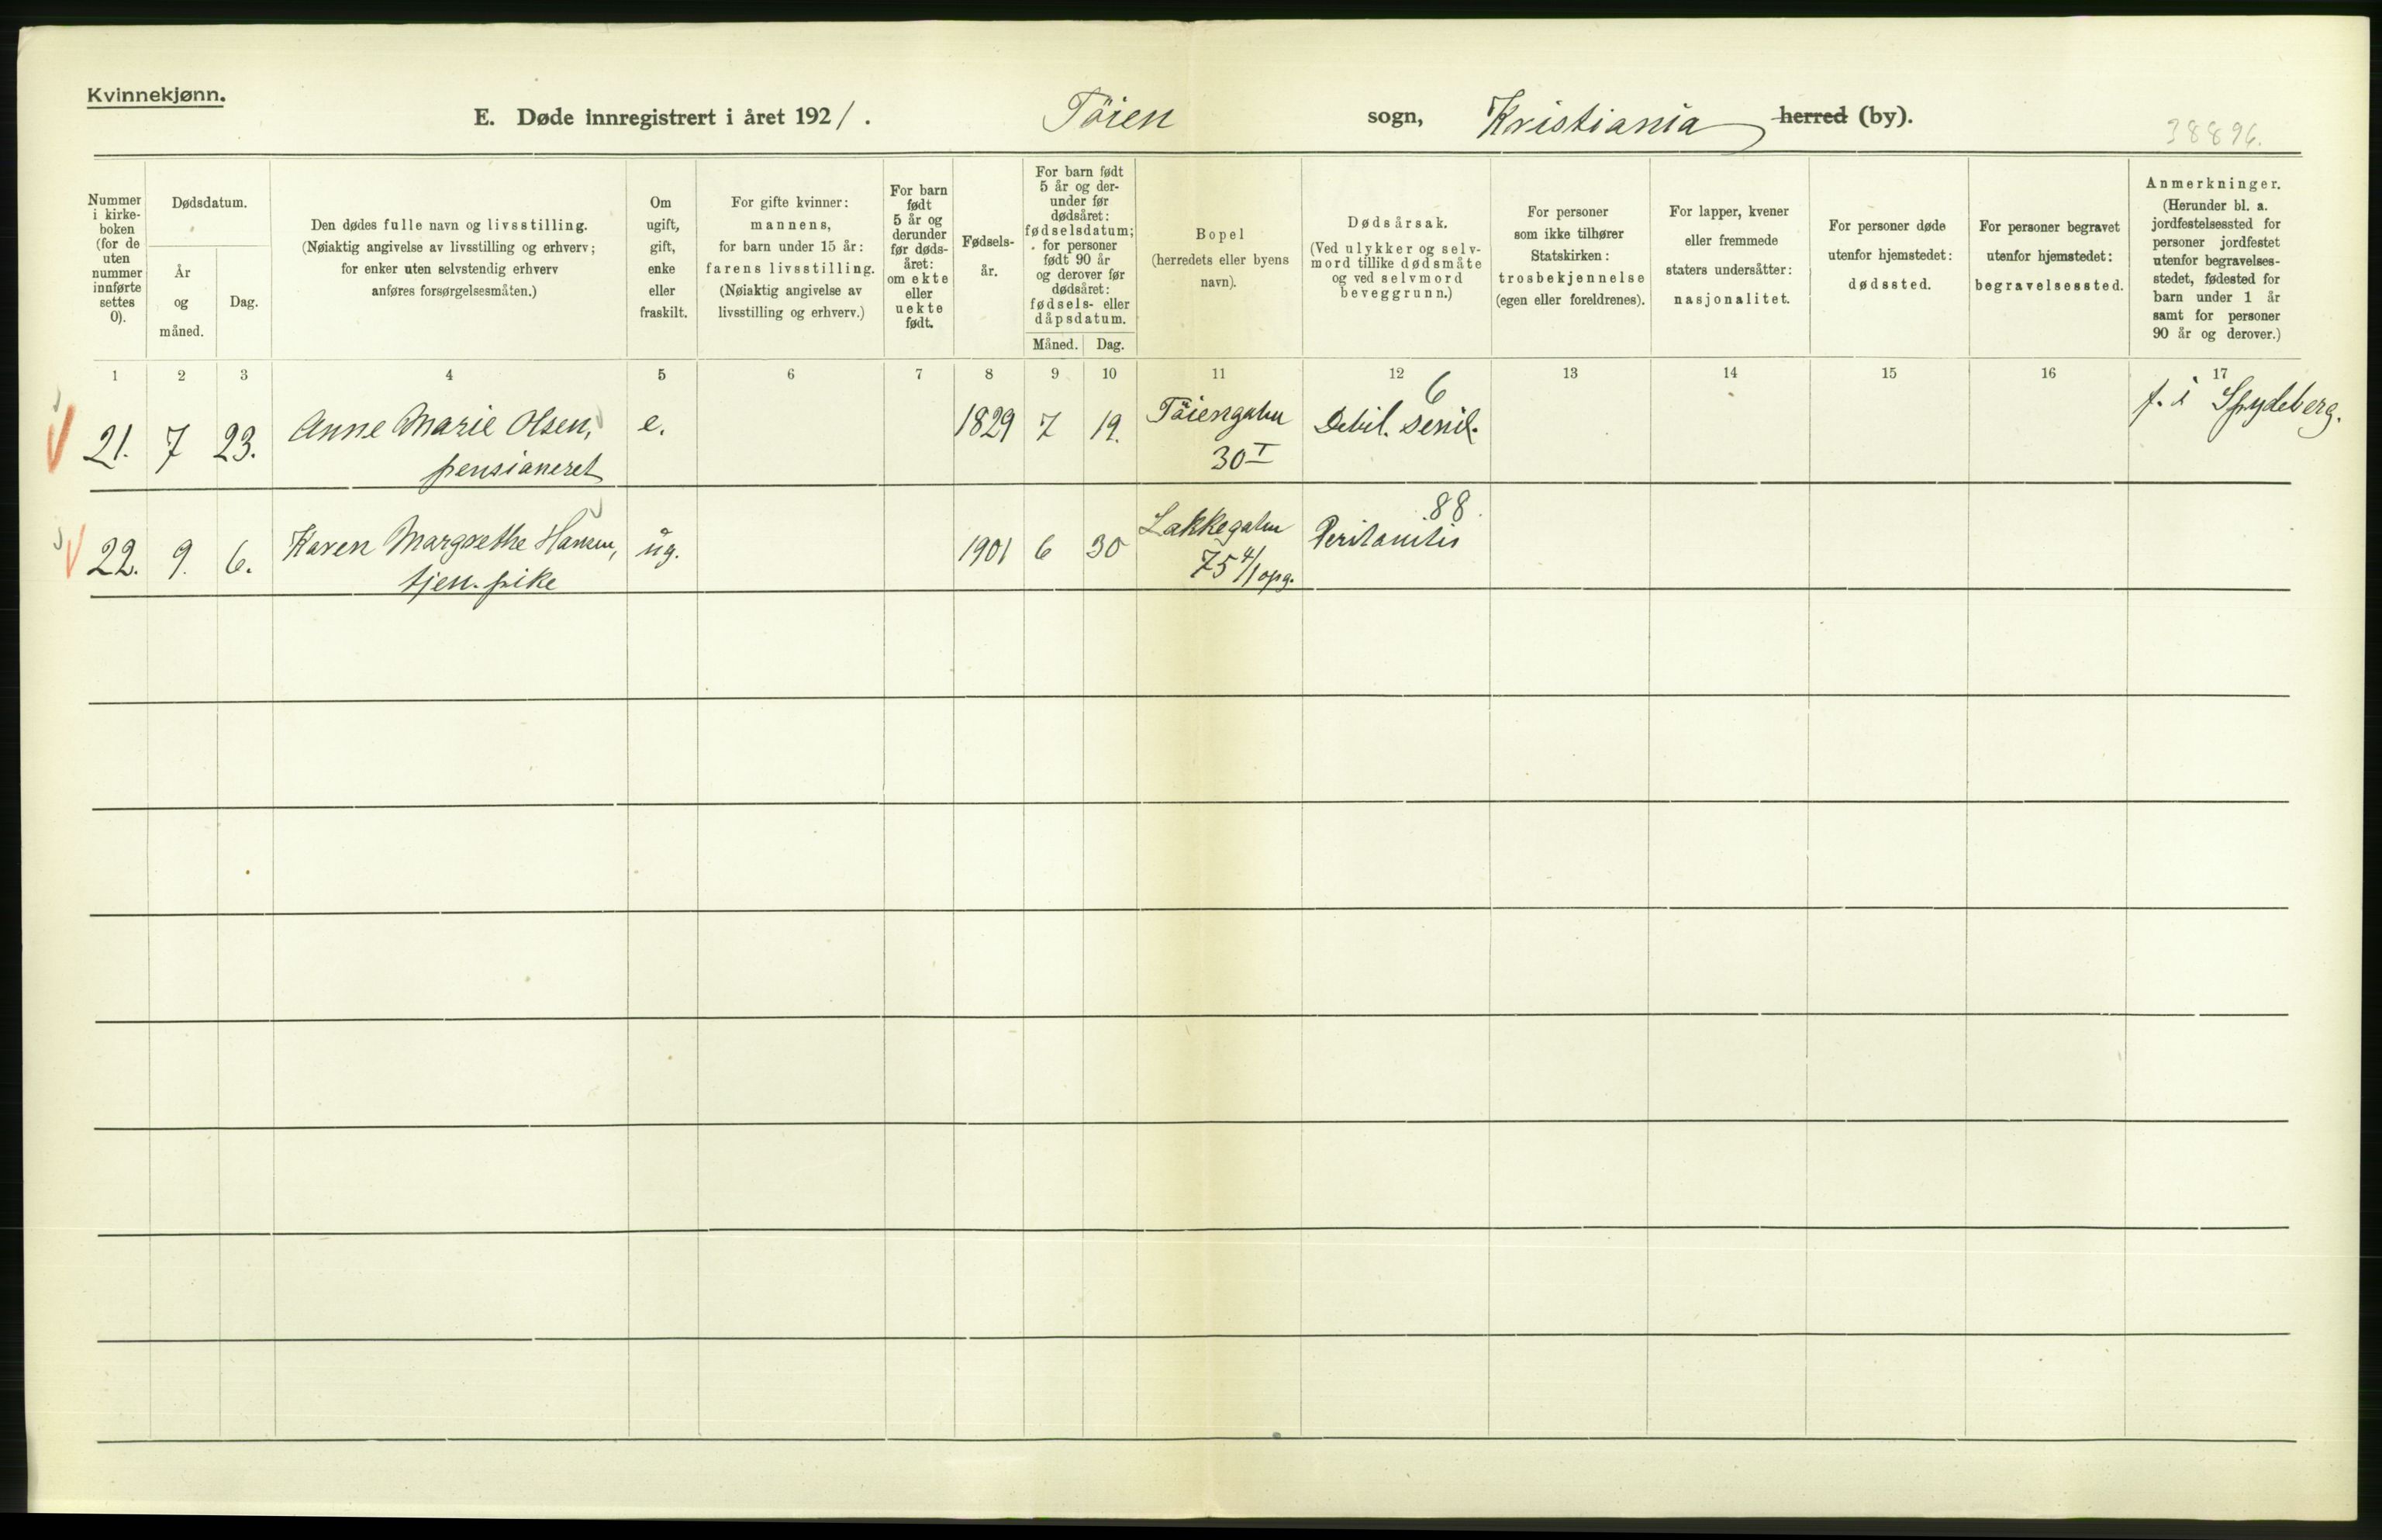 Kvinnekjønn.
E. Døde innregistrert i året 1921. Töien sogn, Kristiania herred (by).
38896.
Nummer
i kirke-
boken
(for de
uten
nummer
innførte
settes
0).
Dødsdatum.
År
og
måned.
Dag.
Den dødes fulle navn og livsstilling.
(Nøiaktig angivelse av livsstilling og erhverv;
for enker uten selvstendig erhverv
anføres forsørgelsesmåten.)
Om
ugift,
gift,
enke
eller
fraskilt.
For gifte kvinner:
mannens,
for barn under 15 år:
farens livsstilling.
(Nøiaktig angivelse av
livsstilling og erhverv.)
For barn
født
5 år og
derunder
før døds-
året:
om ekte
eller
uekte
født.
Fødsels-
år.
For barn født
5 år og der-
under før
dødsåret:
fødselsdatum;
for personer
født 90 år
og derover før
dødsåret:
fødsels- eller
dåpsdatum.
Måned. Dag.
Bopel
(herredets eller byens
navn).
Dødsårsak.
(Ved ulykker og selv-
mord tillike dødsmåte
og ved selvmord
beveggrunn.)
For personer
som ikke tilhører
Statskirken:
trosbekjennelse
(egen eller foreldrenes).
For lapper, kvener
eller fremmede
staters undersåtter:
nasjonalitet.
For personer døde
utenfor hjemstedet:
dødssted.
For personer begravet
utenfor hjemstedet:
begravelsessted.
Anmerkninger.
(Herunder bl. a.
jordfestelsessted for
personer jordfestet
utenfor begravelses-
stedet, fødested for
barn under 1 år
samt for personer
90 år og derover.)
1 2 3 4 5 6 7 8 9 10 11 12 13 14 15 16 17
6
21. 7 23. Anne Marie Olsen, e. 1829 7 19. Töiengaten Debil. senil. f. i Spydeberg.
pensioneret 30 I
88.
22. 9. 6. Karen Margrethe Hansen, ug. 1901 6 30 Lakkegaten Peritonitis
tjen. pike 75 4/1 opg.